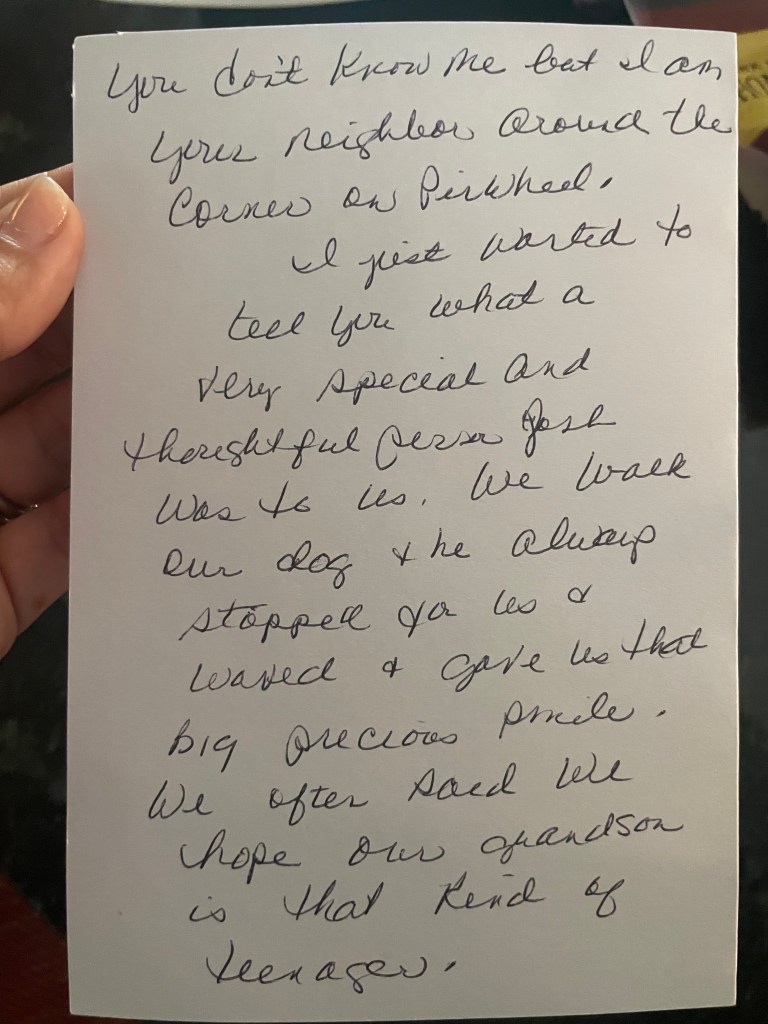 You don't know me but I am
your neighbor around the
corner on Pinwheel.
I just wanted to
tell you what a
very special and
thoughtful person Josh
was to us. We walk
our dog & he always
stopped for us &
waved & gave us that
big precious smile.
We often said we
hope our grandson
is that kind of
teenager.